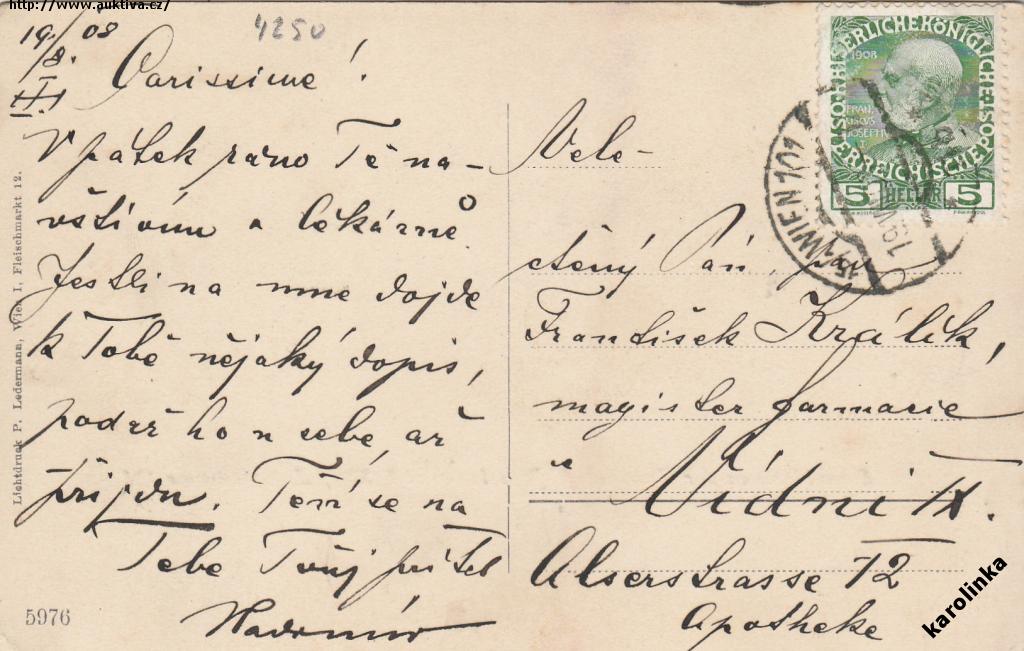 http://www.auktiva.cz/
4250
19/8. 08
Carissime!
V pátek ráno Tě na-
vštívím v lékárně.
Jestli na mne dojde
k Tobě nějaký dopis,
podrž ho u sebe, až
přijdu. Těší se na
Tebe Tvůj přítel
Lichtdruck P. Ledermann, Wien I, Fleischmarkt 12.
5976
Vele-
ctěný Pán, pan
František Králík,
magister farmacie
ve
Vídni IX.
Alserstrasse 12
Apotheke
KAISERLICHE KÖNIGLICHE
ÖSTERREICHISCHE POST
1908
FRAN
CISCUS
JOSEPH I
5 HELLER 5
WIEN 101
karolinka